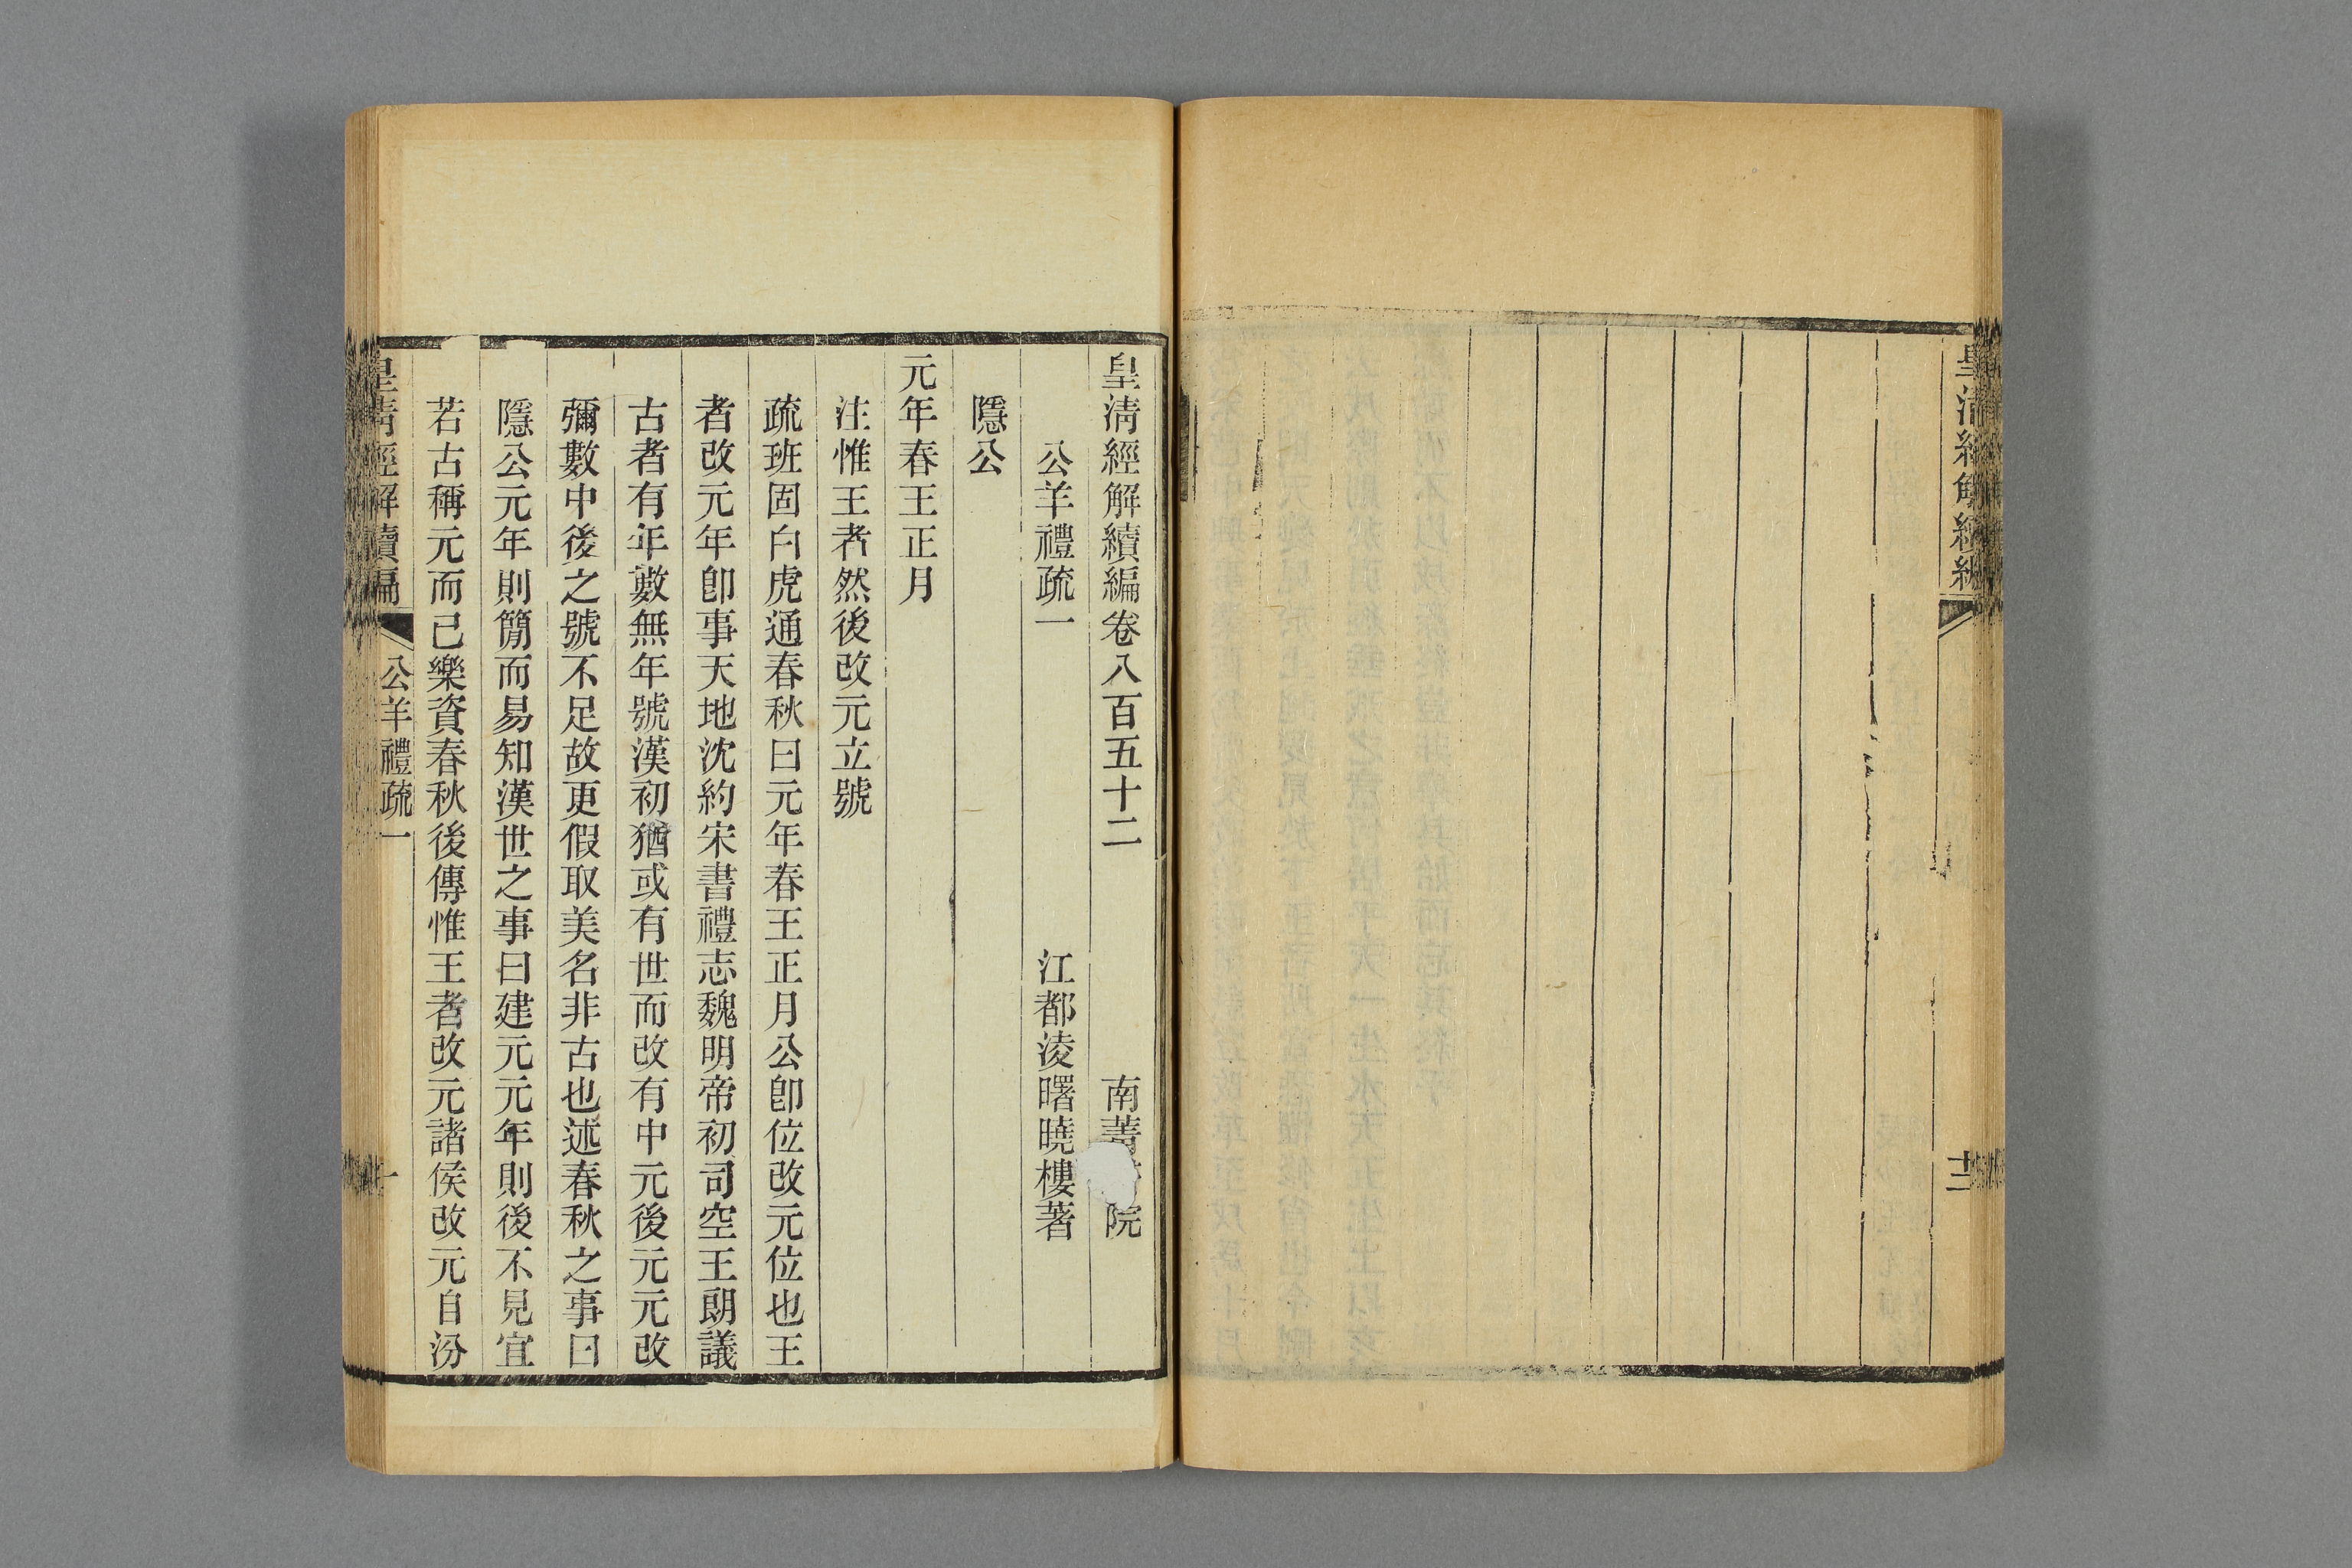 皇清經解續編
十二
皇清經解續編卷八百五十二 南菁 院
公羊禮疏一 江都淩曙曉樓著
隱公
元年春王正月
注惟王者然後改元立號
疏班固白虎通春秋曰元年春王正月公卽位改元位也王
者改元年卽事天地沈約宋書禮志魏明帝初司空王朗議
古者有年數無年號漢初猶或有世而改有中元後元元改
彌數中後之號不足故更假取美名非古也述春秋之事曰
隱公元年則簡而易知漢世之事曰建元元年則後不見宜
若古稱元而已樂資春秋後傳惟王者改元諸侯改元自汾
皇清經解續編 公羊禮疏一 一